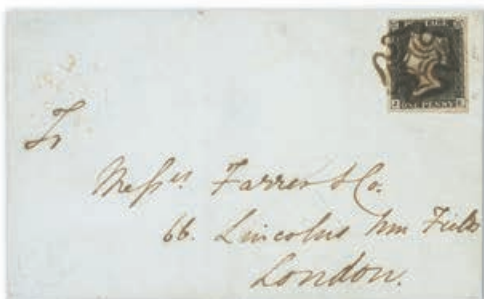 POSTAGE
ONE PENNY
To
Messrs Farrer & Co.
66. Lincolns Inn Fields
London.